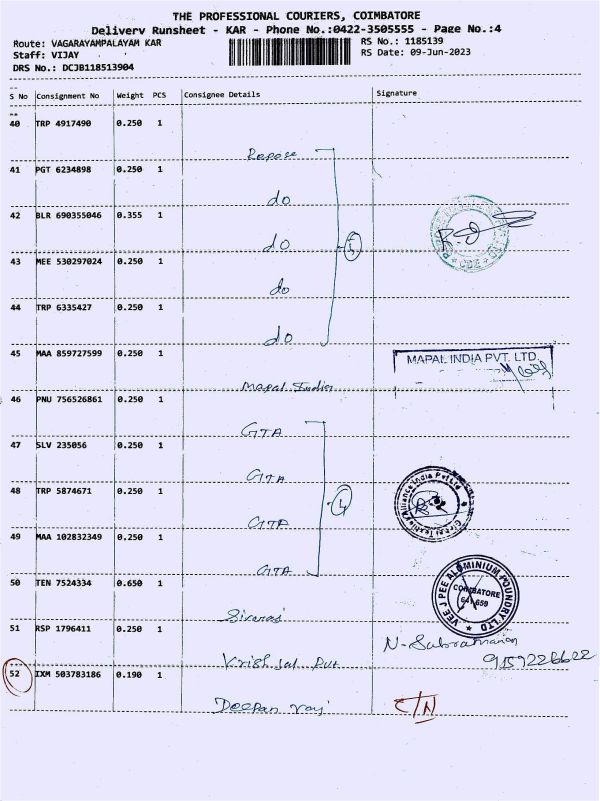 THE PROFESSIONAL COURIERS, COIMBATORE
Delivery Runsheet - KAR - Phone No.:0422-3505555 - Page No.:4
Route: VAGARAYAMPALAYAM KAR
RS No.: 1185139
Staff: VIJAY
RS Date: 09-Jun-2023
DRS No.: DCJB118513904
S No Consignment No Weight PCS Consignee Details Signature
40 TRP 4917490 0.250 1
Repose
41 PGT 6234898 0.250 1
do
42 BLR 690355046 0.355 1
do
5
43 MEE 530297024 0.250 1
do
44 TRP 6335427 0.250 1
do
45 MAA 859727599 0.250 1
MAPAL INDIA PVT. LTD.
Mapal India
46 PNU 756526861 0.250 1
GTA
47 SLV 235056 0.250 1
GTA
48 TRP 5874671 0.250 1
Global Textiles Alliance India Pvt Ltd
4
GTA
49 MAA 102832349 0.250 1
GTA
50 TEN 7524334 0.650 1
VEE J PEE ALUMINIUM FOUNDRY LTD
COIMBATORE
641 659
Sivaraj
51 RSP 1796411 0.250 1
N. Subramanian
9159226622
52 IXM 503783186 0.190 1
Deepan raj